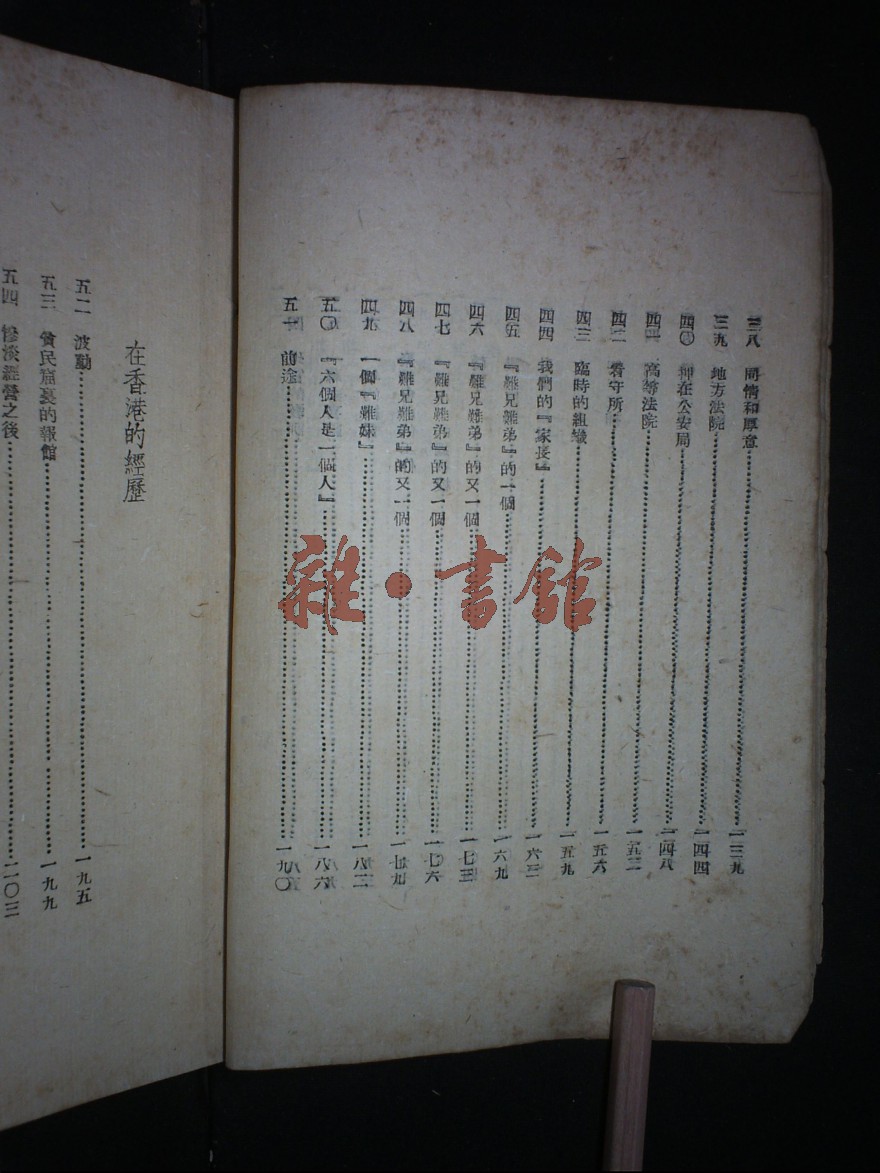 三八 同情和厚意……一三九
三九 地方法院……一四四
四〇 押在公安局……一四八
四一 高等法院……一五二
四二 看守所……一五六
四三 臨時的組織……一五九
四四 我們的『家長』……一六三
四五 『難兄難弟』的一個……一六九
四六 『難兄難弟』的又一個……一七三
四七 『難兄難弟』的又一個……一七六
四八 『難兄難弟』的又一個……一七九
四九 一個『難妹』……一八二
五〇 『六個人是一個人』……一八六
五一 前途……一九〇
在香港的經歷
五二 波動……一九五
五三 貧民窟裏的報館……一九九
五四 慘淡經營之後……二〇三
雜·書館